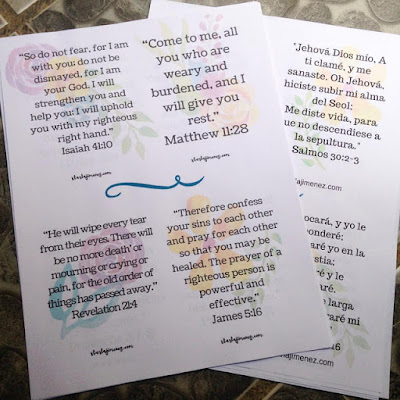 "So do not fear, for I am
with you; do not be
dismayed, for I am
your God. I will
strengthen you and
help you; I will uphold
you with my righteous
right hand."
Isaiah 41:10
"Come to me, all
you who are
weary and
burdened, and I
will give you
rest."
Matthew 11:28
"He will wipe every tear
from their eyes. There will
be no more death' or
mourning or crying or
pain, for the old order of
things has passed away."
Revelation 21:4
"Therefore confess
your sins to each other
and pray for each other
so that you may be
healed. The prayer of a
righteous person is
powerful and
effective."
James 5:16
"Jehová Dios mío, A
ti clamé, y me
sanaste. Oh Jehová,
hiciste subir mi alma
del Seol;
Me diste vida, para
que no descendiese a
la sepultura."
Salmos 30:2-3
jimenez.com
ocará, y yo le
onderé;
aré yo en la
stia;
é y le
é.
e larga
raré mi